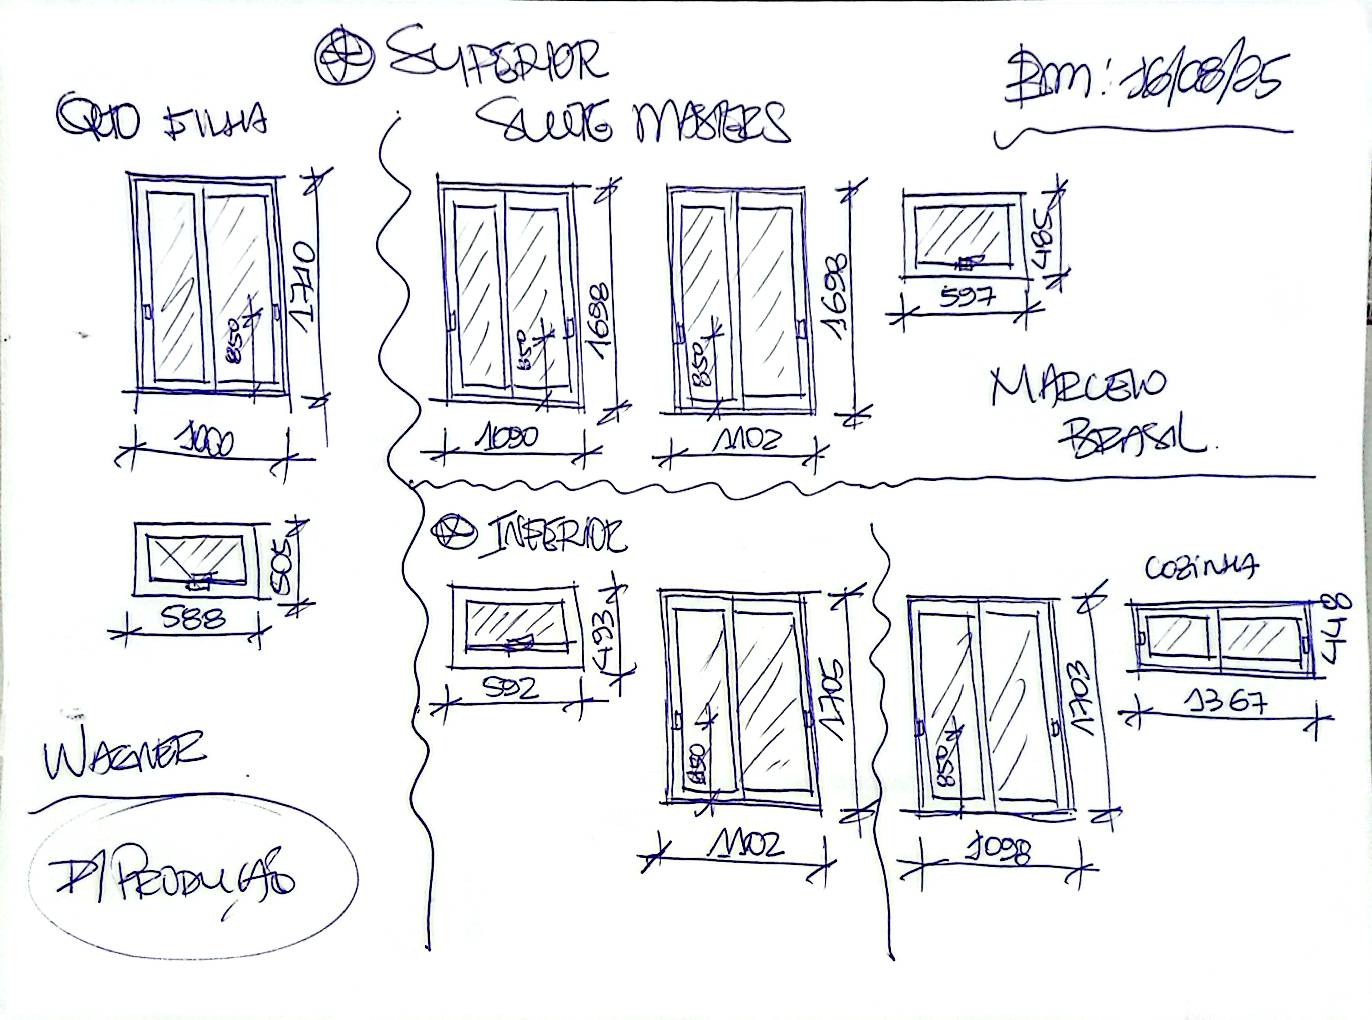 SUPERIOR
16/08/25
QTO FILHA
SUITE MASTERS
1740
850
1000
1698
850
1090
1698
850
1102
485
597
MARCELO
BRASIL.
505
588
INFERIOR
493
592
1705
850
1102
1703
850
1098
COZINHA
448
1367
WAGNER
P/ PRODUÇÃO